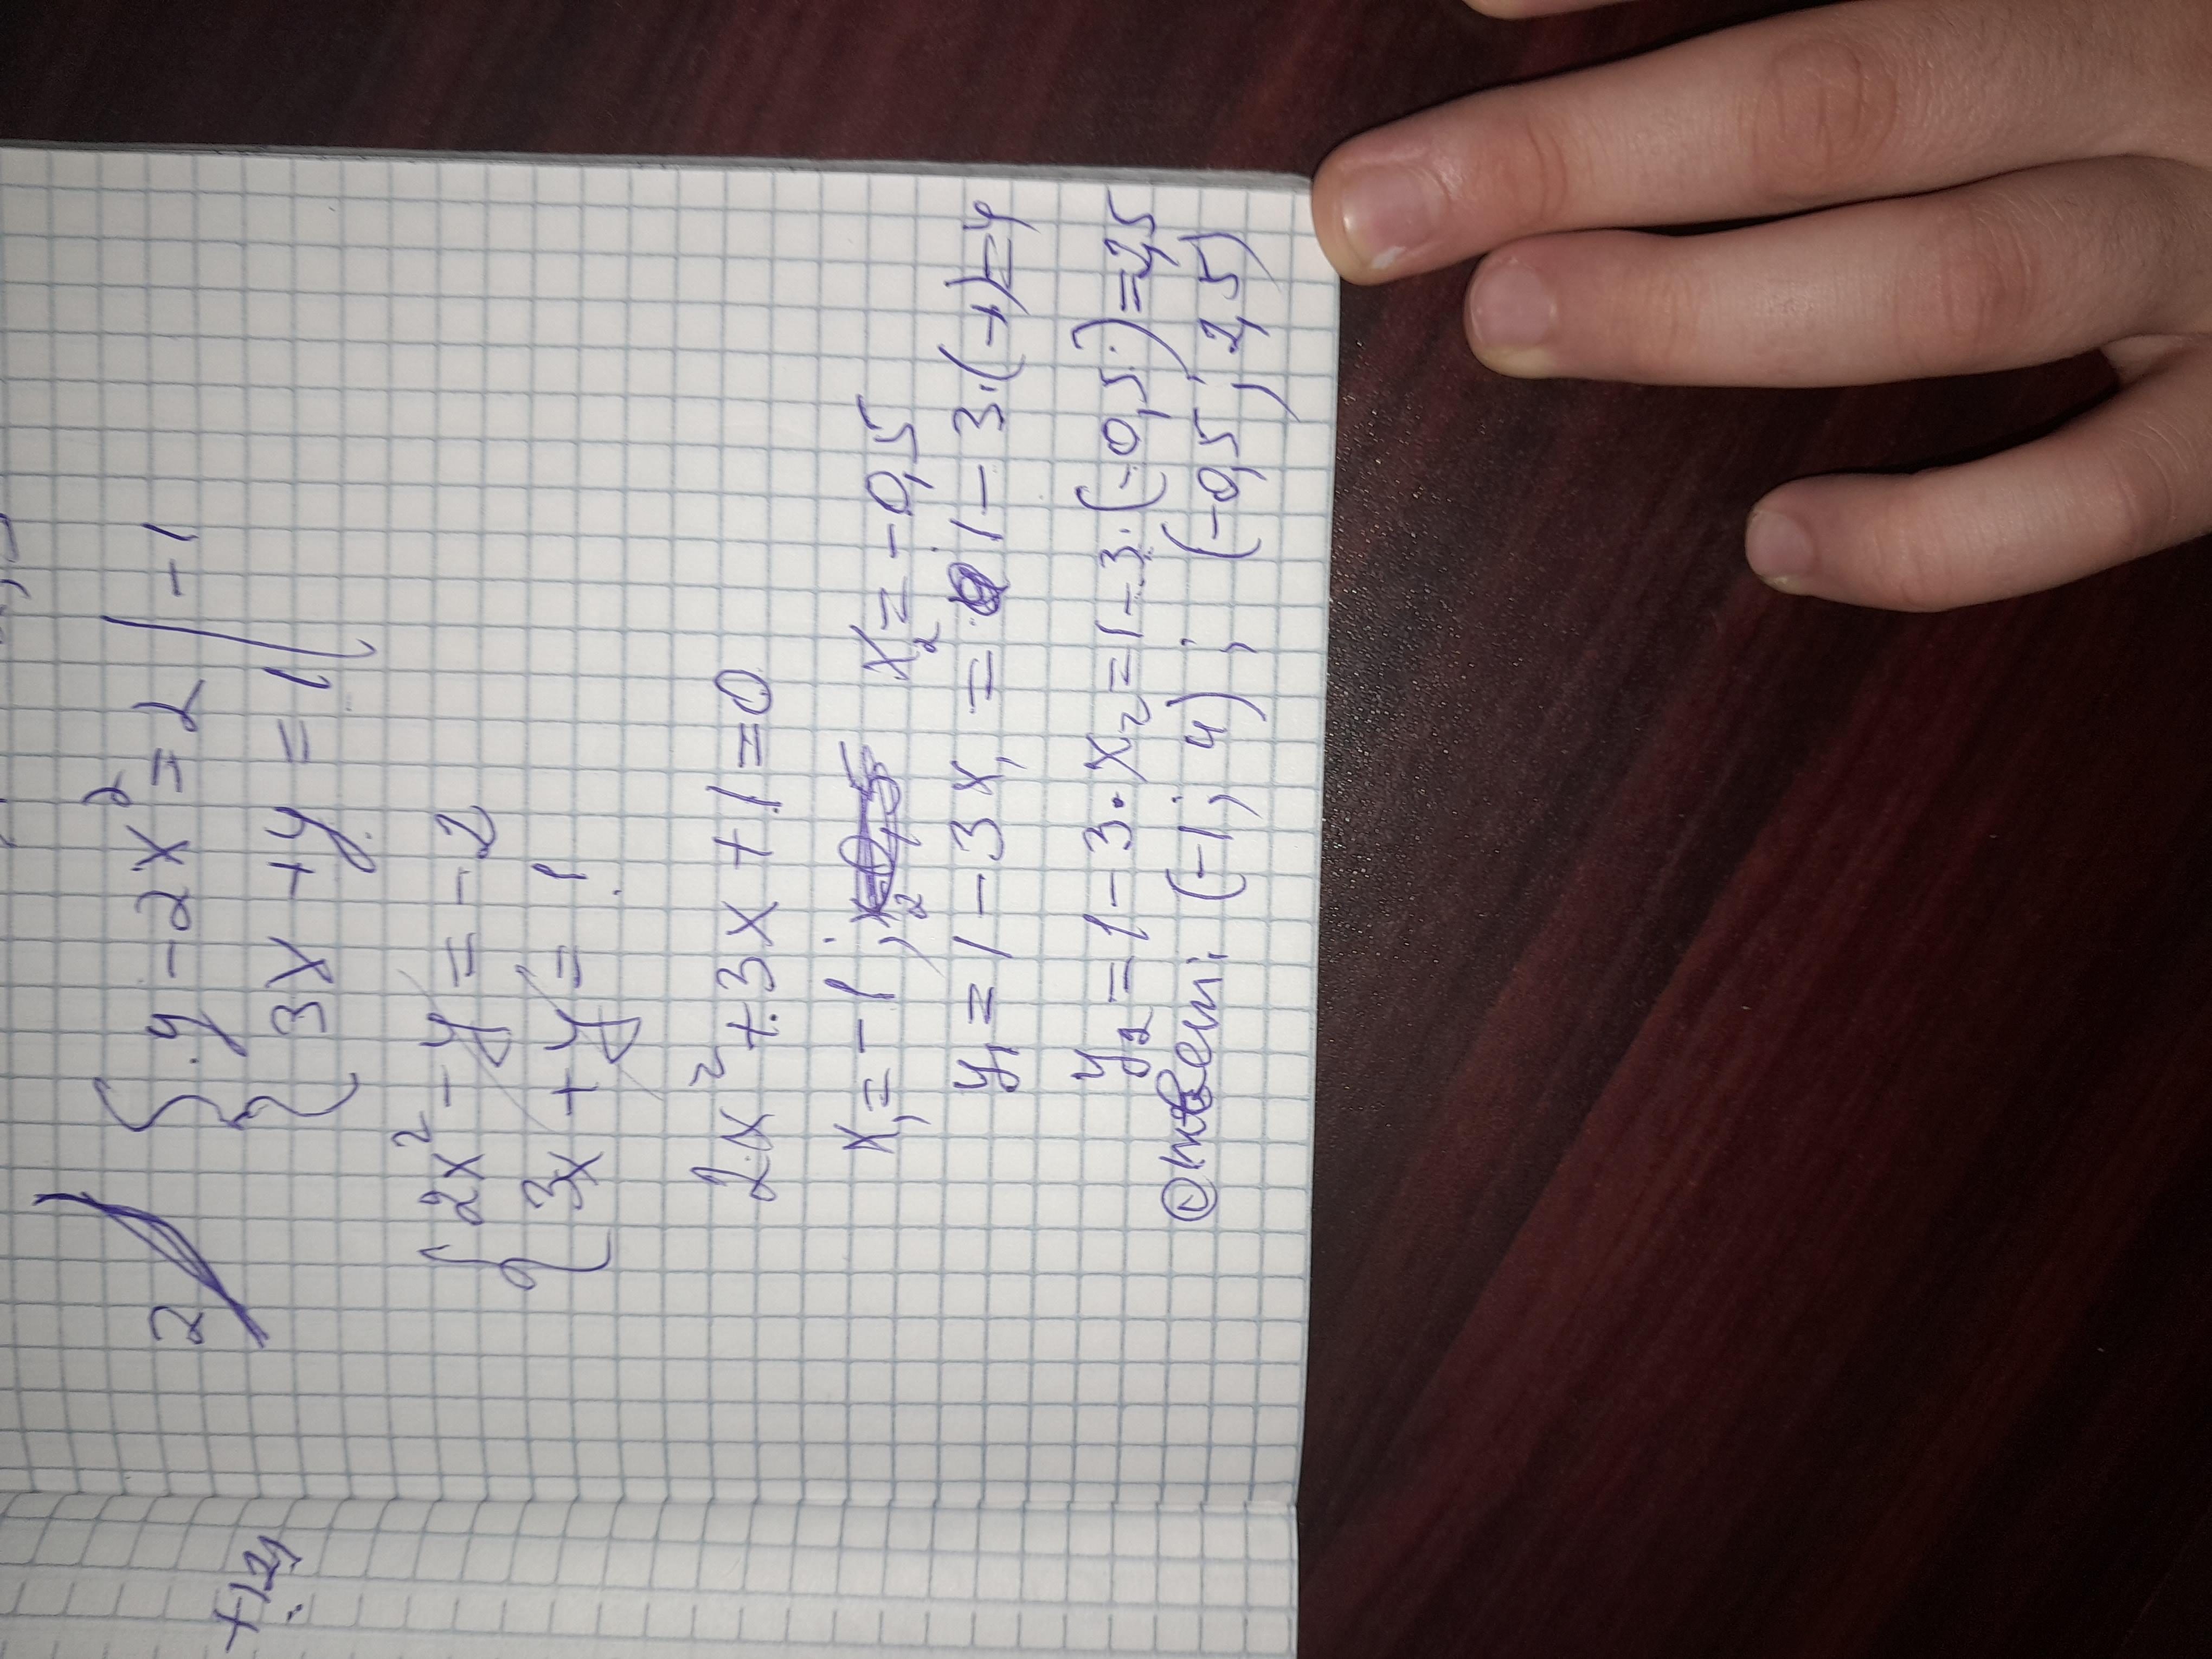 2) { y - 2x² = 2 | -1
3x + y = 1 |
{ 2x² - y = -2
3x + y = 1
2x² + 3x + 1 = 0
x₁ = -1; x₂ = -0,5
y₁ = 1 - 3x₁ = 1 - 3·(-1) = 4
y₂ = 1 - 3·x₂ = 1 - 3·(-0,5) = 2,5
Ответ: (-1; 4); (-0,5; 2,5)